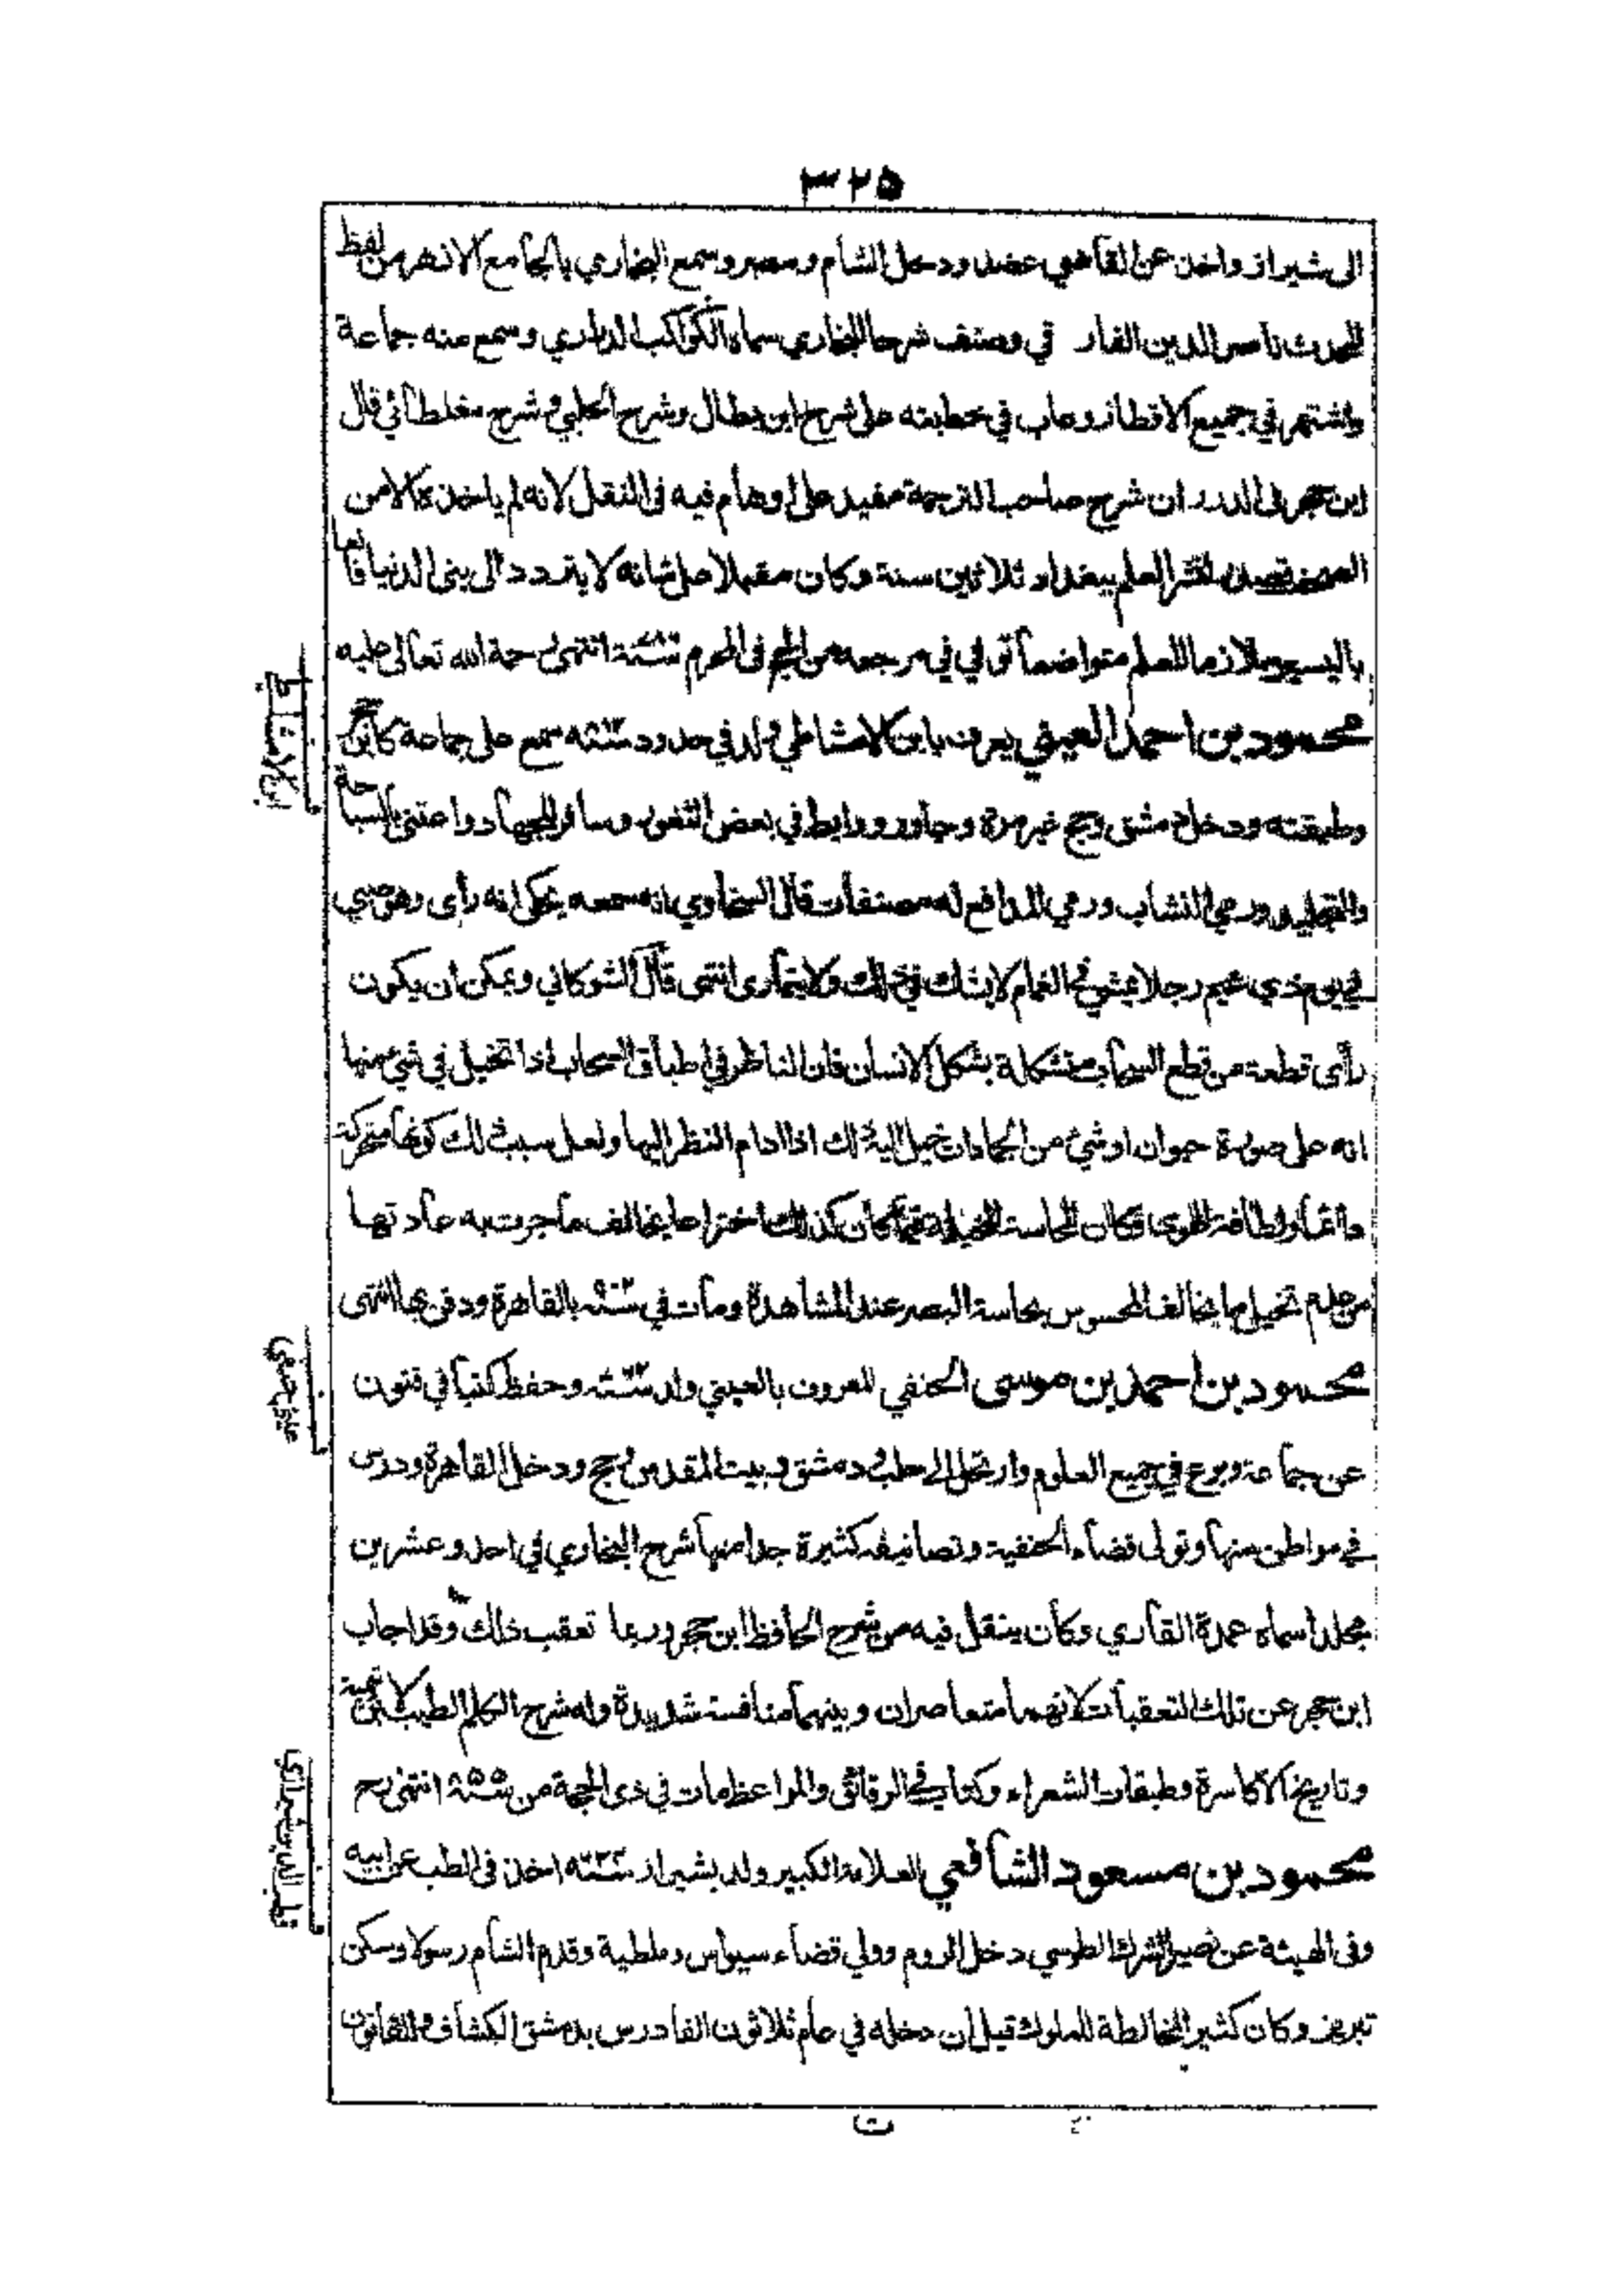 ٣٢٥
الى شيراز واخذ عن القاضي عضد ودخل الشام ومصر وسمع البخاري بالجامع الازهر من لفظ
المحدث ناصر الدين الفارقي وصنف شرحا للبخاري سماه الكواكب الدراري وسمع منه جماعة
واشتهر في جميع الاقطار وعاب في خطبته على شرح ابن بطال وشرح الحلبي وشرح مغلطائي قال
ابن حجر فى الدرر ان شرح صاحب الترجمة مفيد على اوهام فيه فى النقل لانه لم ياخذه الا من
الصحف تصدى لنشر العلم ببغداد ثلاثين سنة وكان مقبلا على شانه لا يتردد الى بنى الدنيا قانعا
باليسير ملازما للعلم متواضعا توفي في مرجعه من الحج فى المحرم انتهى رحمة الله تعالى عليه
محمود بن احمد العيني يعرف بابن الامشاطي ولد في حدود سمع على جماعة كابن حجر
وطبقته ودخل دمشق وحج غير مرة وجاور ورابط في بعض الثغور وسافر للجهاد واعتنى بالسباحة
ورمي النشاب ورمي المدافع له مصنفات قال السخاوي انه سمعه يحكى انه رأى وهو صبي
في يوم ذي غيم رجلا يمشي في الغمام لا يشك في ذلك ولا يتمارى انتهى قال الشوكاني ويمكن ان يكون
رأى قطعة من قطع السحاب متشكلة بشكل الانسان فان الناظر في اطباق السحاب اذا تخيل في شيء منها
انه على صورة حيوان او شيء من الجمادات خيل اليه ذلك اذا ادام النظر اليها ولعل سبب ذلك كونها متحركة
دائما ولطافة الهوى فكان للحاسة المخيلة كذلك اختراعا يخالف ما جرت به عادتها
من عدم تخيل ما يخالف المحسوس بحاسة البصر عند المشاهدة ومات في سنة ٩٠٢ بالقاهرة ودفن بها انتهى
محمود بن احمد بن موسى الحنفي المعروف بالعيني ولد وحفظ كتبا في فنون
عن جماعة وبرع في جميع العلوم وارتحل الى حلب ودمشق وبيت المقدس وحج ودخل القاهرة ودرس
في مواطن منها وتولى قضاء الحنفية وتصانيفه كثيرة جدا منها شرح البخاري في احد وعشرين
مجلدا سماه عمدة القاري وكان ينقل فيه من شرح الحافظ ابن حجر وربما تعقب ذلك وقد اجاب
ابن حجر عن تلك التعقبات لانهما متعاصران وبينهما منافسة شديدة وله شرح الكلم الطيب لابن تيمية
وتاريخ الاكاسرة وطبقات الشعراء وكتاب في الرقائق والمواعظ مات في ذى الحجة من سنة ٨٥٥ انتهى رح
محمود بن مسعود الشافعي العلامة الكبير ولد بشيراز اخذ فى الطب عن ابيه
وفى الهيئة عن نصير الشرك الطوسي دخل الروم وولي قضاء سيواس وملطية وقدم الشام رسولا وسكن
تبريز وكان كثير المخالطة للملوك قيل ان دخله في عام ثلاثون الفا درس بدمشق الكشاف والقانون
ابن الامشاطي
عيني حنفي
قطب الدين شيرازي
ت